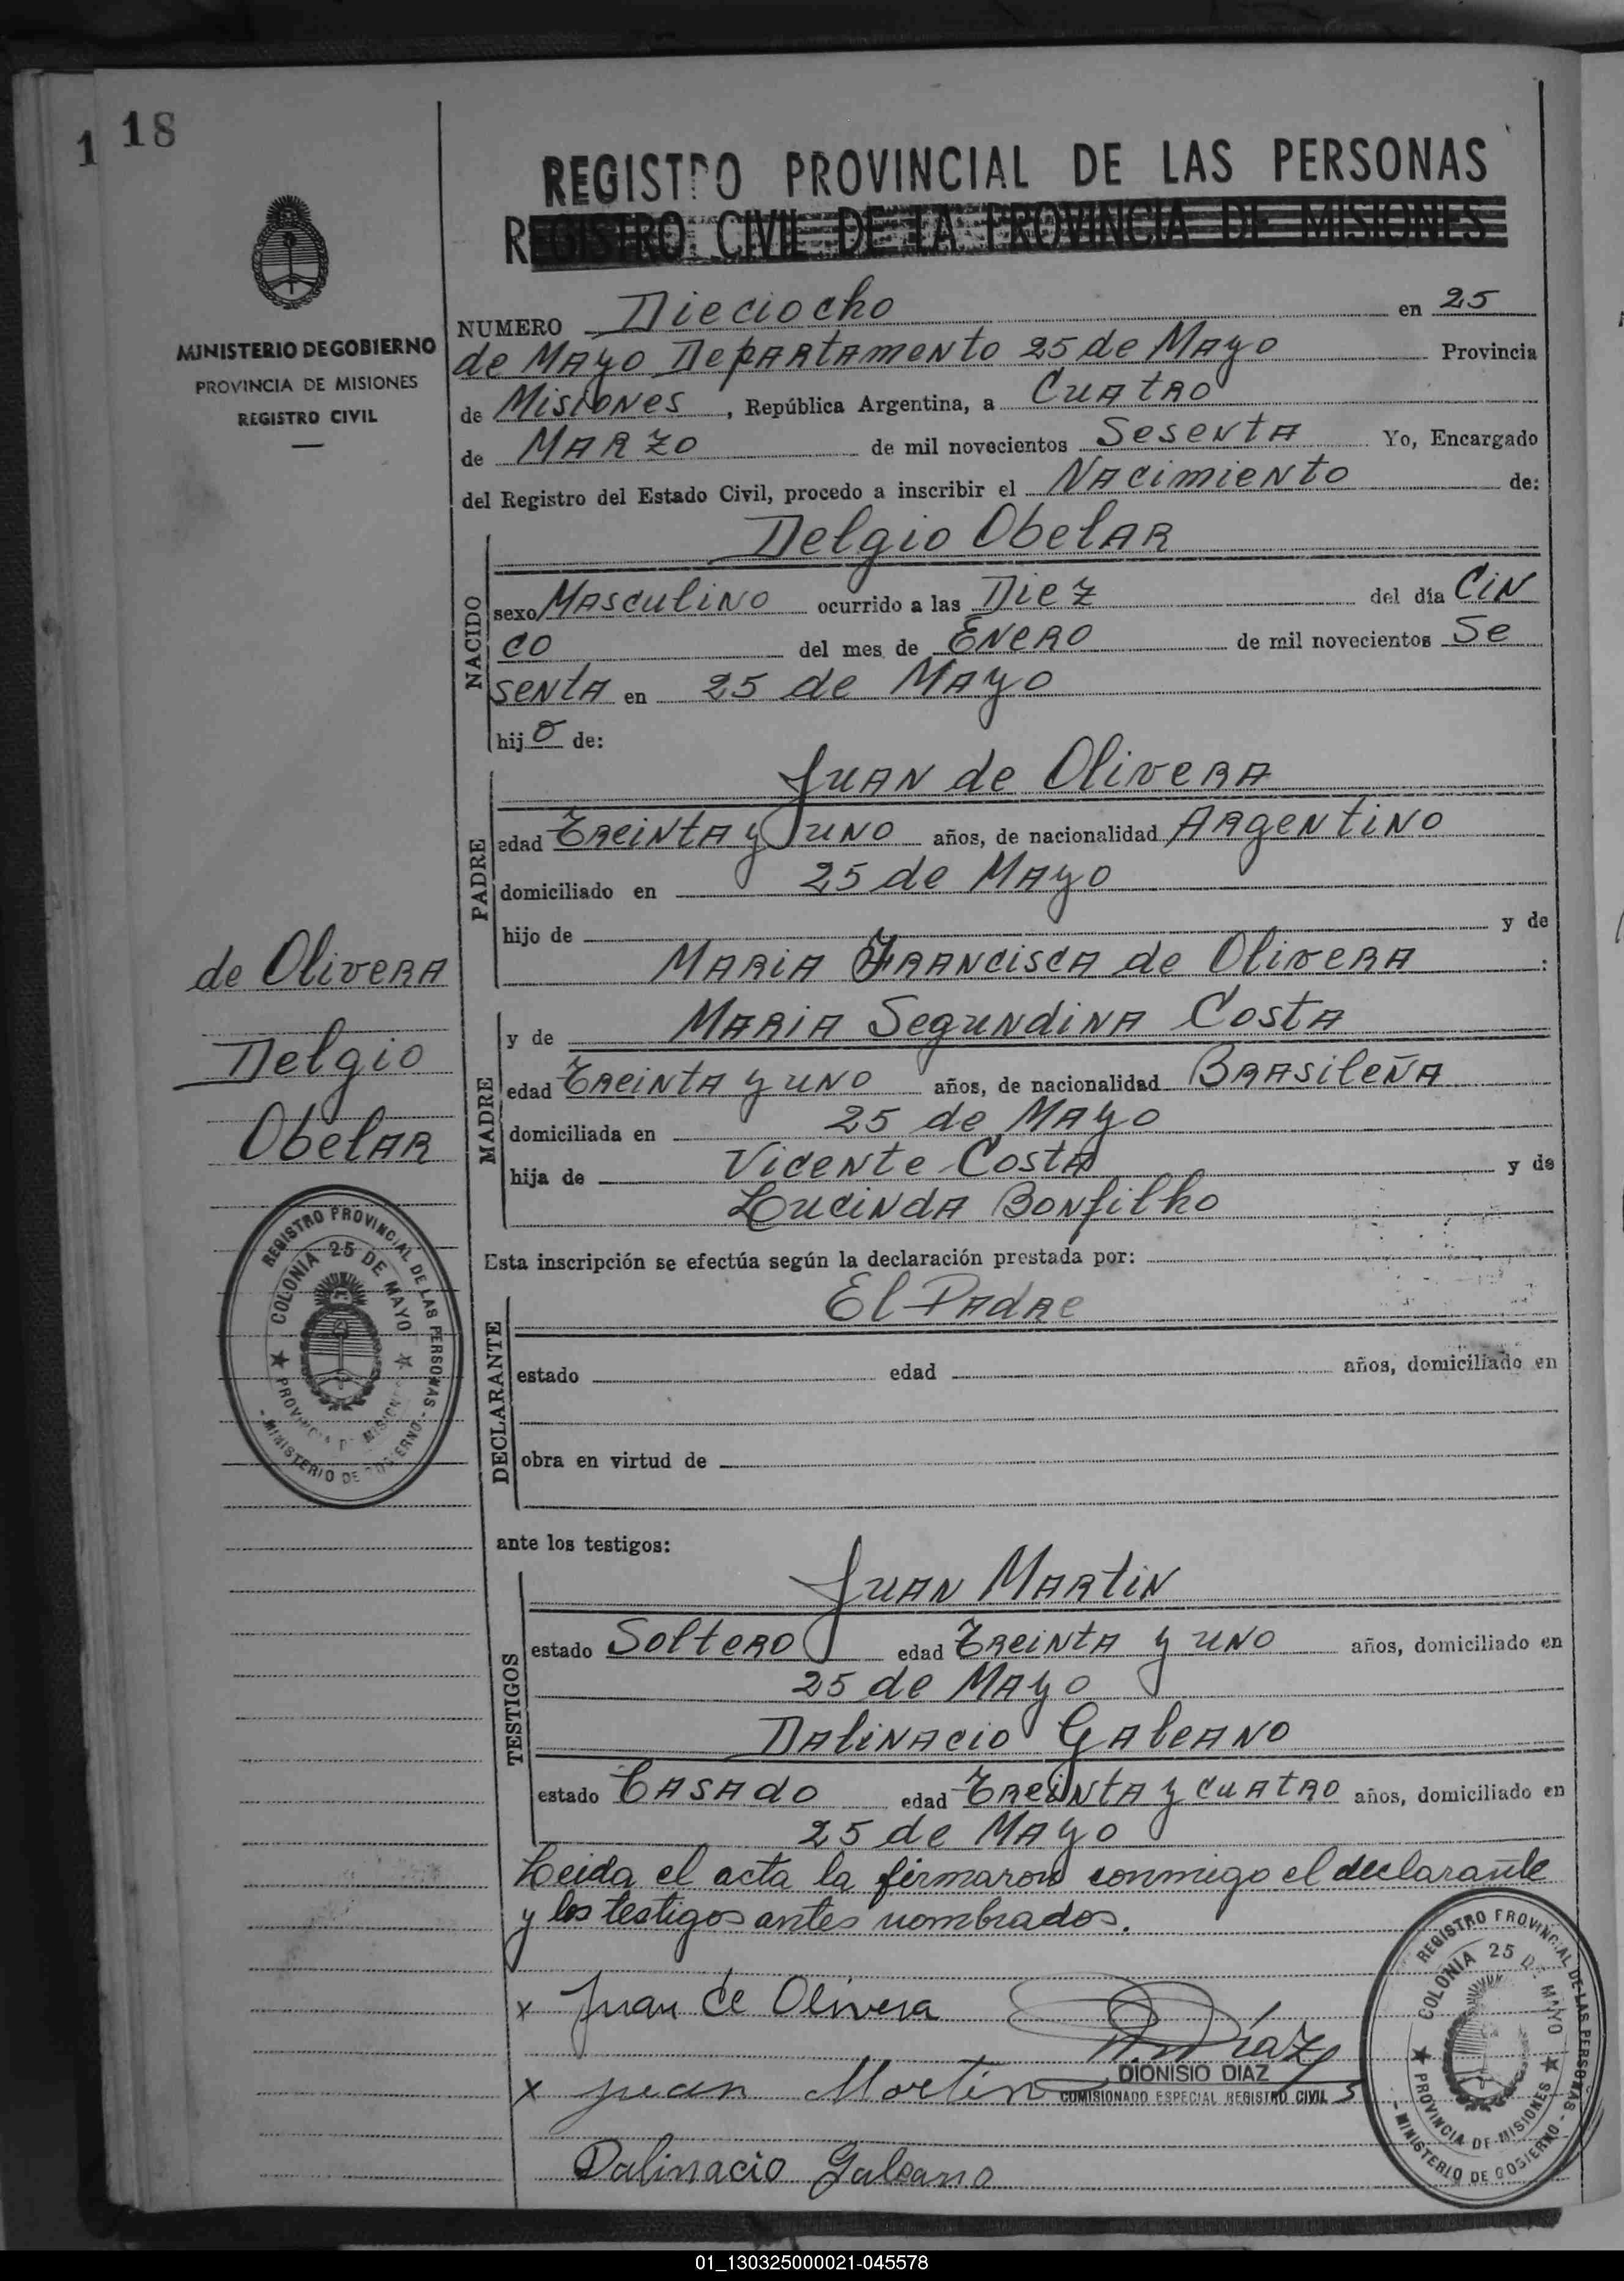 1 18
REGISTRO PROVINCIAL DE LAS PERSONAS
REGISTRO CIVIL DE LA PROVINCIA DE MISIONES
MINISTERIO DE GOBIERNO
PROVINCIA DE MISIONES
REGISTRO CIVIL
NUMERO Dieciocho en 25
de Mayo Departamento 25 de Mayo Provincia
de Misiones, República Argentina, a Cuatro
de Marzo de mil novecientos Sesenta Yo, Encargado
del Registro del Estado Civil, procedo a inscribir el Nacimiento de:
NACIDO
Delgio Obelar
sexo Masculino ocurrido a las Diez del día Cin
co del mes de Enero de mil novecientos Se
senta en 25 de Mayo
hijo de:
PADRE
Juan de Olivera
edad Treinta y uno años, de nacionalidad Argentino
domiciliado en 25 de Mayo
hijo de y de
Maria Francisca de Olivera :
MADRE
y de Maria Segundina Costa
edad Treinta y uno años, de nacionalidad Brasileña
domiciliada en 25 de Mayo
hija de Vicente Costa y de
Lucinda Bonfilho
de Olivera
Delgio
Obelar
REGISTRO PROVINCIAL DE LAS PERSONAS - MINISTERIO DE GOBIERNO -
COLONIA 25 DE MAYO ★ PROVINCIA DE MISIONES ★
Esta inscripción se efectúa según la declaración prestada por:
DECLARANTE
El Padre
estado edad años, domiciliado en
obra en virtud de
ante los testigos:
TESTIGOS
Juan Martin
estado Soltero edad Treinta y uno años, domiciliado en
25 de Mayo
Dalinacio Galeano
estado Casado edad Treinta y cuatro años, domiciliado en
25 de Mayo
Leida el acta la firmaron conmigo el declarante
y los testigos antes nombrados.
x Juan de Olivera
Díaz
DIONISIO DIAZ
COMISIONADO ESPECIAL REGISTRO CIVIL
x Juan Martin
Dalinacio Galeano
REGISTRO PROVINCIAL DE LAS PERSONAS - MINISTERIO DE GOBIERNO -
COLONIA 25 DE MAYO ★ PROVINCIA DE MISIONES ★
01_130325000021-045578